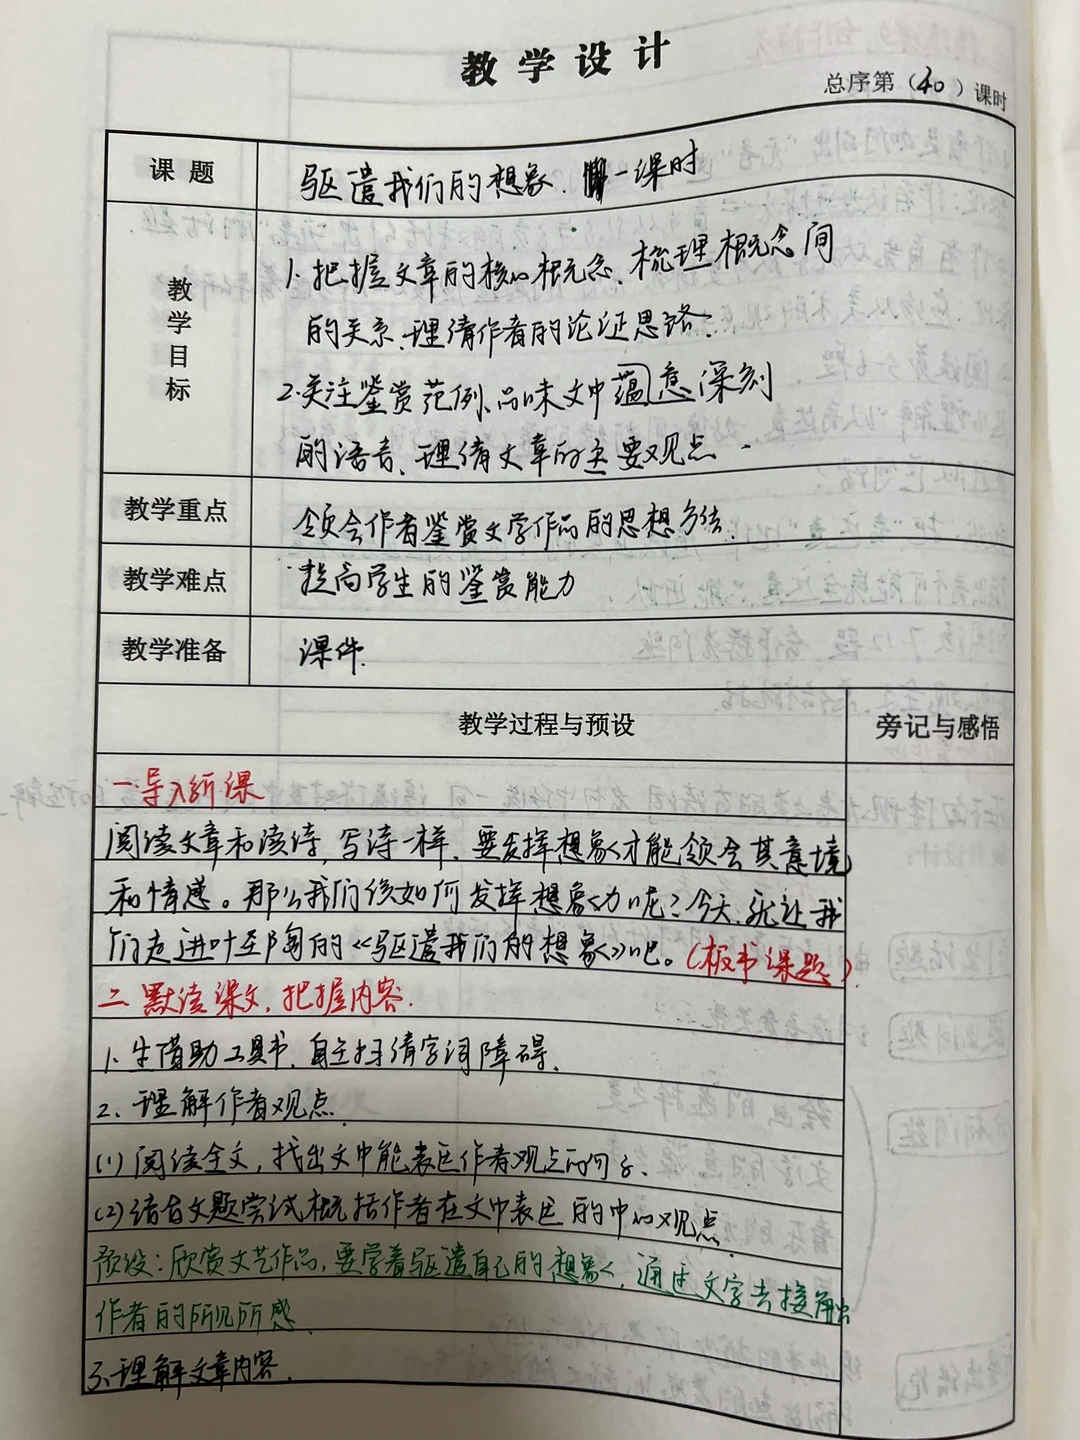 教学设计
总序第（40）课时
课题
驱遣我们的想象. 一课时
教学目标
1. 把握文章的核心概念、梳理概念间
的关系、理清作者的论证思路.
2. 关注鉴赏范例、品味文中蕴意深刻
的语言、理清文章的主要观点.
教学重点
领会作者鉴赏文学作品的思想方法.
教学难点
提高学生的鉴赏能力
教学准备
课件.
教学过程与预设
旁记与感悟
一.导入新课
阅读文章和读诗,写诗一样,要发挥想象才能领会其意境
和情感。那么我们该如何发挥想象力呢?今天,就让我
们走进叶圣陶的《驱遣我们的想象》吧。(板书课题).
二.默读课文,把握内容.
1. 生借助工具书,自主扫清字词障碍.
2. 理解作者观点.
(1)阅读全文,找出文中能表达作者观点的句子.
(2)结合文题尝试概括作者在文中表达的中心观点.
预设:欣赏文艺作品,要学着驱遣自己的想象,通过文字去接触
作者的所见所感.
3.理解文章内容.